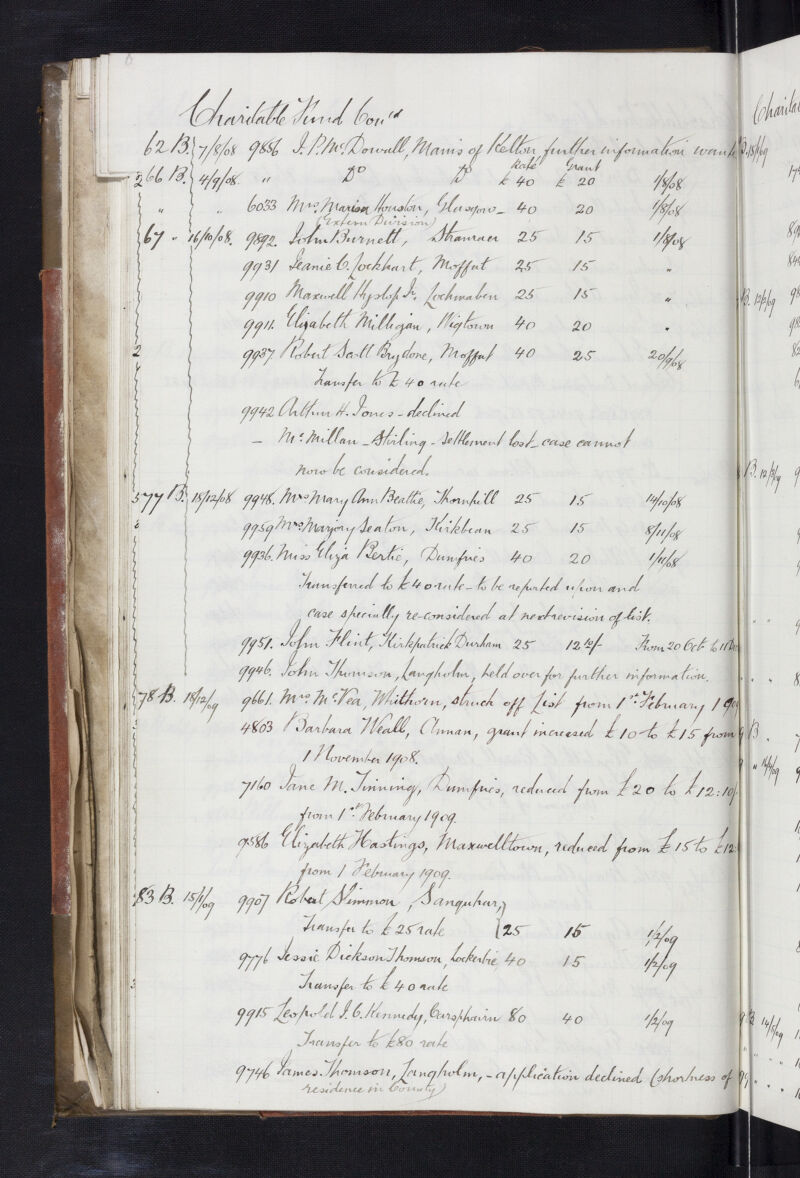 Charitable Fund Con'd
62 B. 7/8/08 9886 J. P. McDowall, Manis of Kelton further information wante
Rate Grant
266 B. 4/9/08. " Do Do £ 40 £ 20 1/8/08
" " 6033 Mrs. Marisa Houston, Glasgow - 40 20 1/8/08
(Extern Division)
67 " 16/10/08. 9892. John Burnett, Stranraer 25 15 1/8/08
9931 Jeanie C. Lockhart, Moffat 25 15 "
9910 Maxwell Hyslop Jr. Lochmaben 25 15 "
9911. Elizabeth Milligan, Wigtown 40 20 "
2 9937 Robert Scott Brydone, Moffat 40 25 20/9/08
Transfer to £40 rate
9942 Arthur H. Jones - declined
- McMillan - Stirling - Settlement lost - case cannot
now be considered.
577 B. 18/12/08 9948. Mrs Mary Ann Beattie, Thornhill 25 15 14/10/08
9959 Mrs Marjory Seaton, Kirkbean 25 15 8/11/08
9936. Miss Eliza Bertie, Dumfries 40 20 1/11/08
Transferred to £40 rate - to be reported upon and
case specially re-considered at next revision of list.
9951. John Flint, Kirkpatrick Durham 25 12 10/- From 20 Oct to 11 Dec
9946. John Thomson, Langholm, held over for further information.
78 B. 18/12/09 9661. Mrs. McVea, Whithorn, struck off List from 1st February 1909
4803 Barbara Weall, Annan, grant increased £10 to £15 from
1 November 1908.
7160 Jane M. Tinning, Dumfries, reduced from £20 to £12:10/
from 1st February 1909.
9586 Elizabeth Hastings, Maxwelltown, reduced from £15 to £12
from 1 February 1909.
83 B. 15/1/09 9907 Robert Slimmon, Sanquhar,
Transfer to £25 rate 25 15 1/2/09
9776 Jessie Dickson Thomson, Lockerbie 40 15 1/2/09
3 Transfer to £40 rate
9915 Leopold J. C. Kennedy, Carsphairn 80 40 1/2/09
Transfer to £80 rate
9746 James Thomson, Langholm, - application declined (shortness of
residence in County)
Charita
B. 18/1/09
B. 12/2/09
B. 12/3/09
B.
" 16/4/09
B 14/5/09